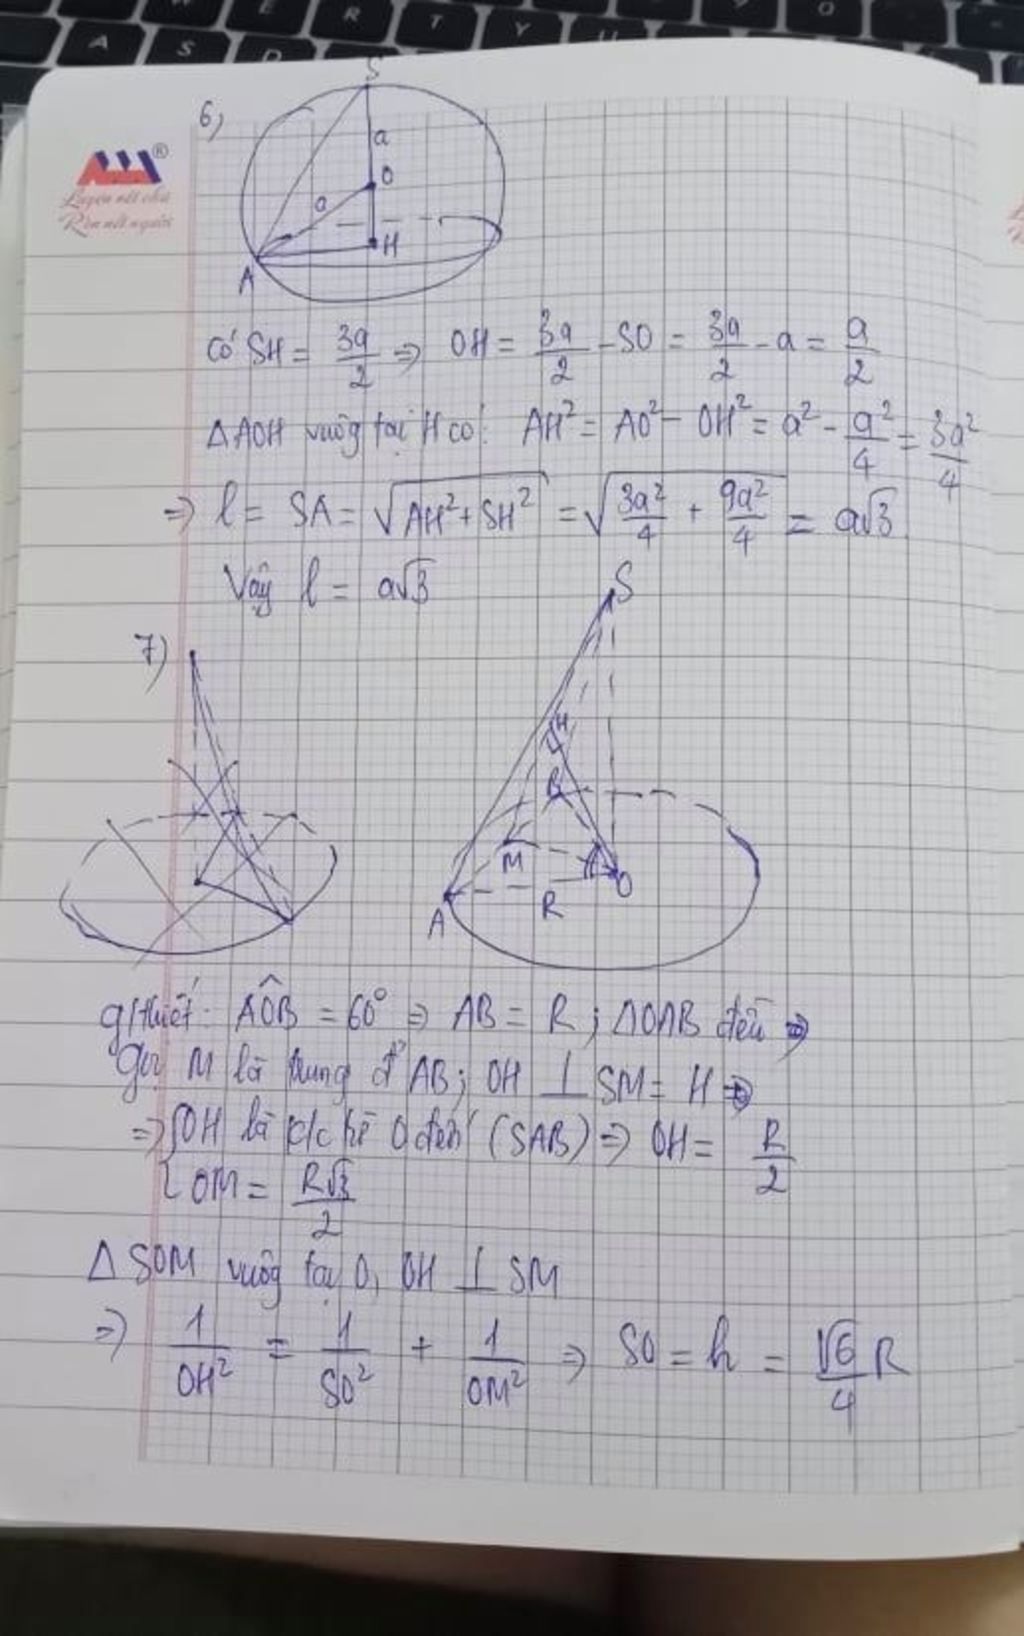 A S D E R T Y U O
6)
S
a
O
a
H
A
Luyện nét chữ
Rèn nết người
Có SH = 3a/2 => OH = 3a/2 - SO = 3a/2 - a = a/2
ΔAOH vuôg tại H có: AH² = AO² - OH² = a² - a²/4 = 3a²/4
=> l = SA = √(AH² + SH²) = √(3a²/4 + 9a²/4) = a√3
Vậy l = a√3
7)
S
H
B
M
O
R
A
g/thiết: AÔB = 60° => AB = R ; ΔOAB đều =>
Gọi M là trung đ' AB; OH ⊥ SM = H =>
=> { OH là k/c kẻ O đến (SAB) => OH = R/2
OM = R√3/2
Δ SOM vuôg tại O, OH ⊥ SM
=> 1/OH² = 1/SO² + 1/OM² => SO = h = √6/4 R